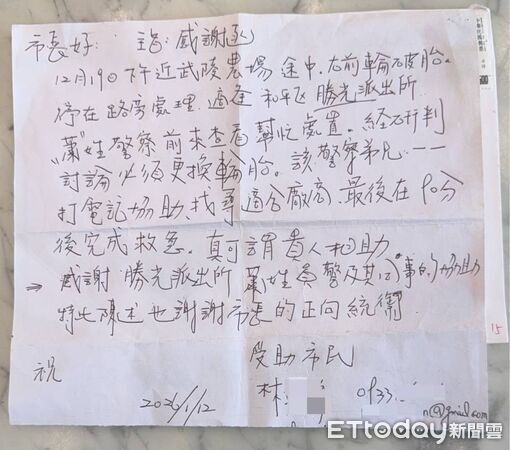 市長好: 主旨:感謝函
12月19日下午近武陵農場途中,右前輪破胎。
停在路旁處理,適逢和平區勝光派出所
"蕭"姓警察前來查看幫忙處置。經研判
討論必須更換輪胎。該警察弟兄一一
打電話協助、找尋適合廠商,最後在90分
後完成救急。真可謂貴人相助
⇒ 感謝:勝光派出所 蕭姓員警及其同事的協助
特此陳述也謝謝市長的正向統御.
受助市民
祝 林 0933
2026/1/12 n@gmail.com
15
ETtoday新聞雲